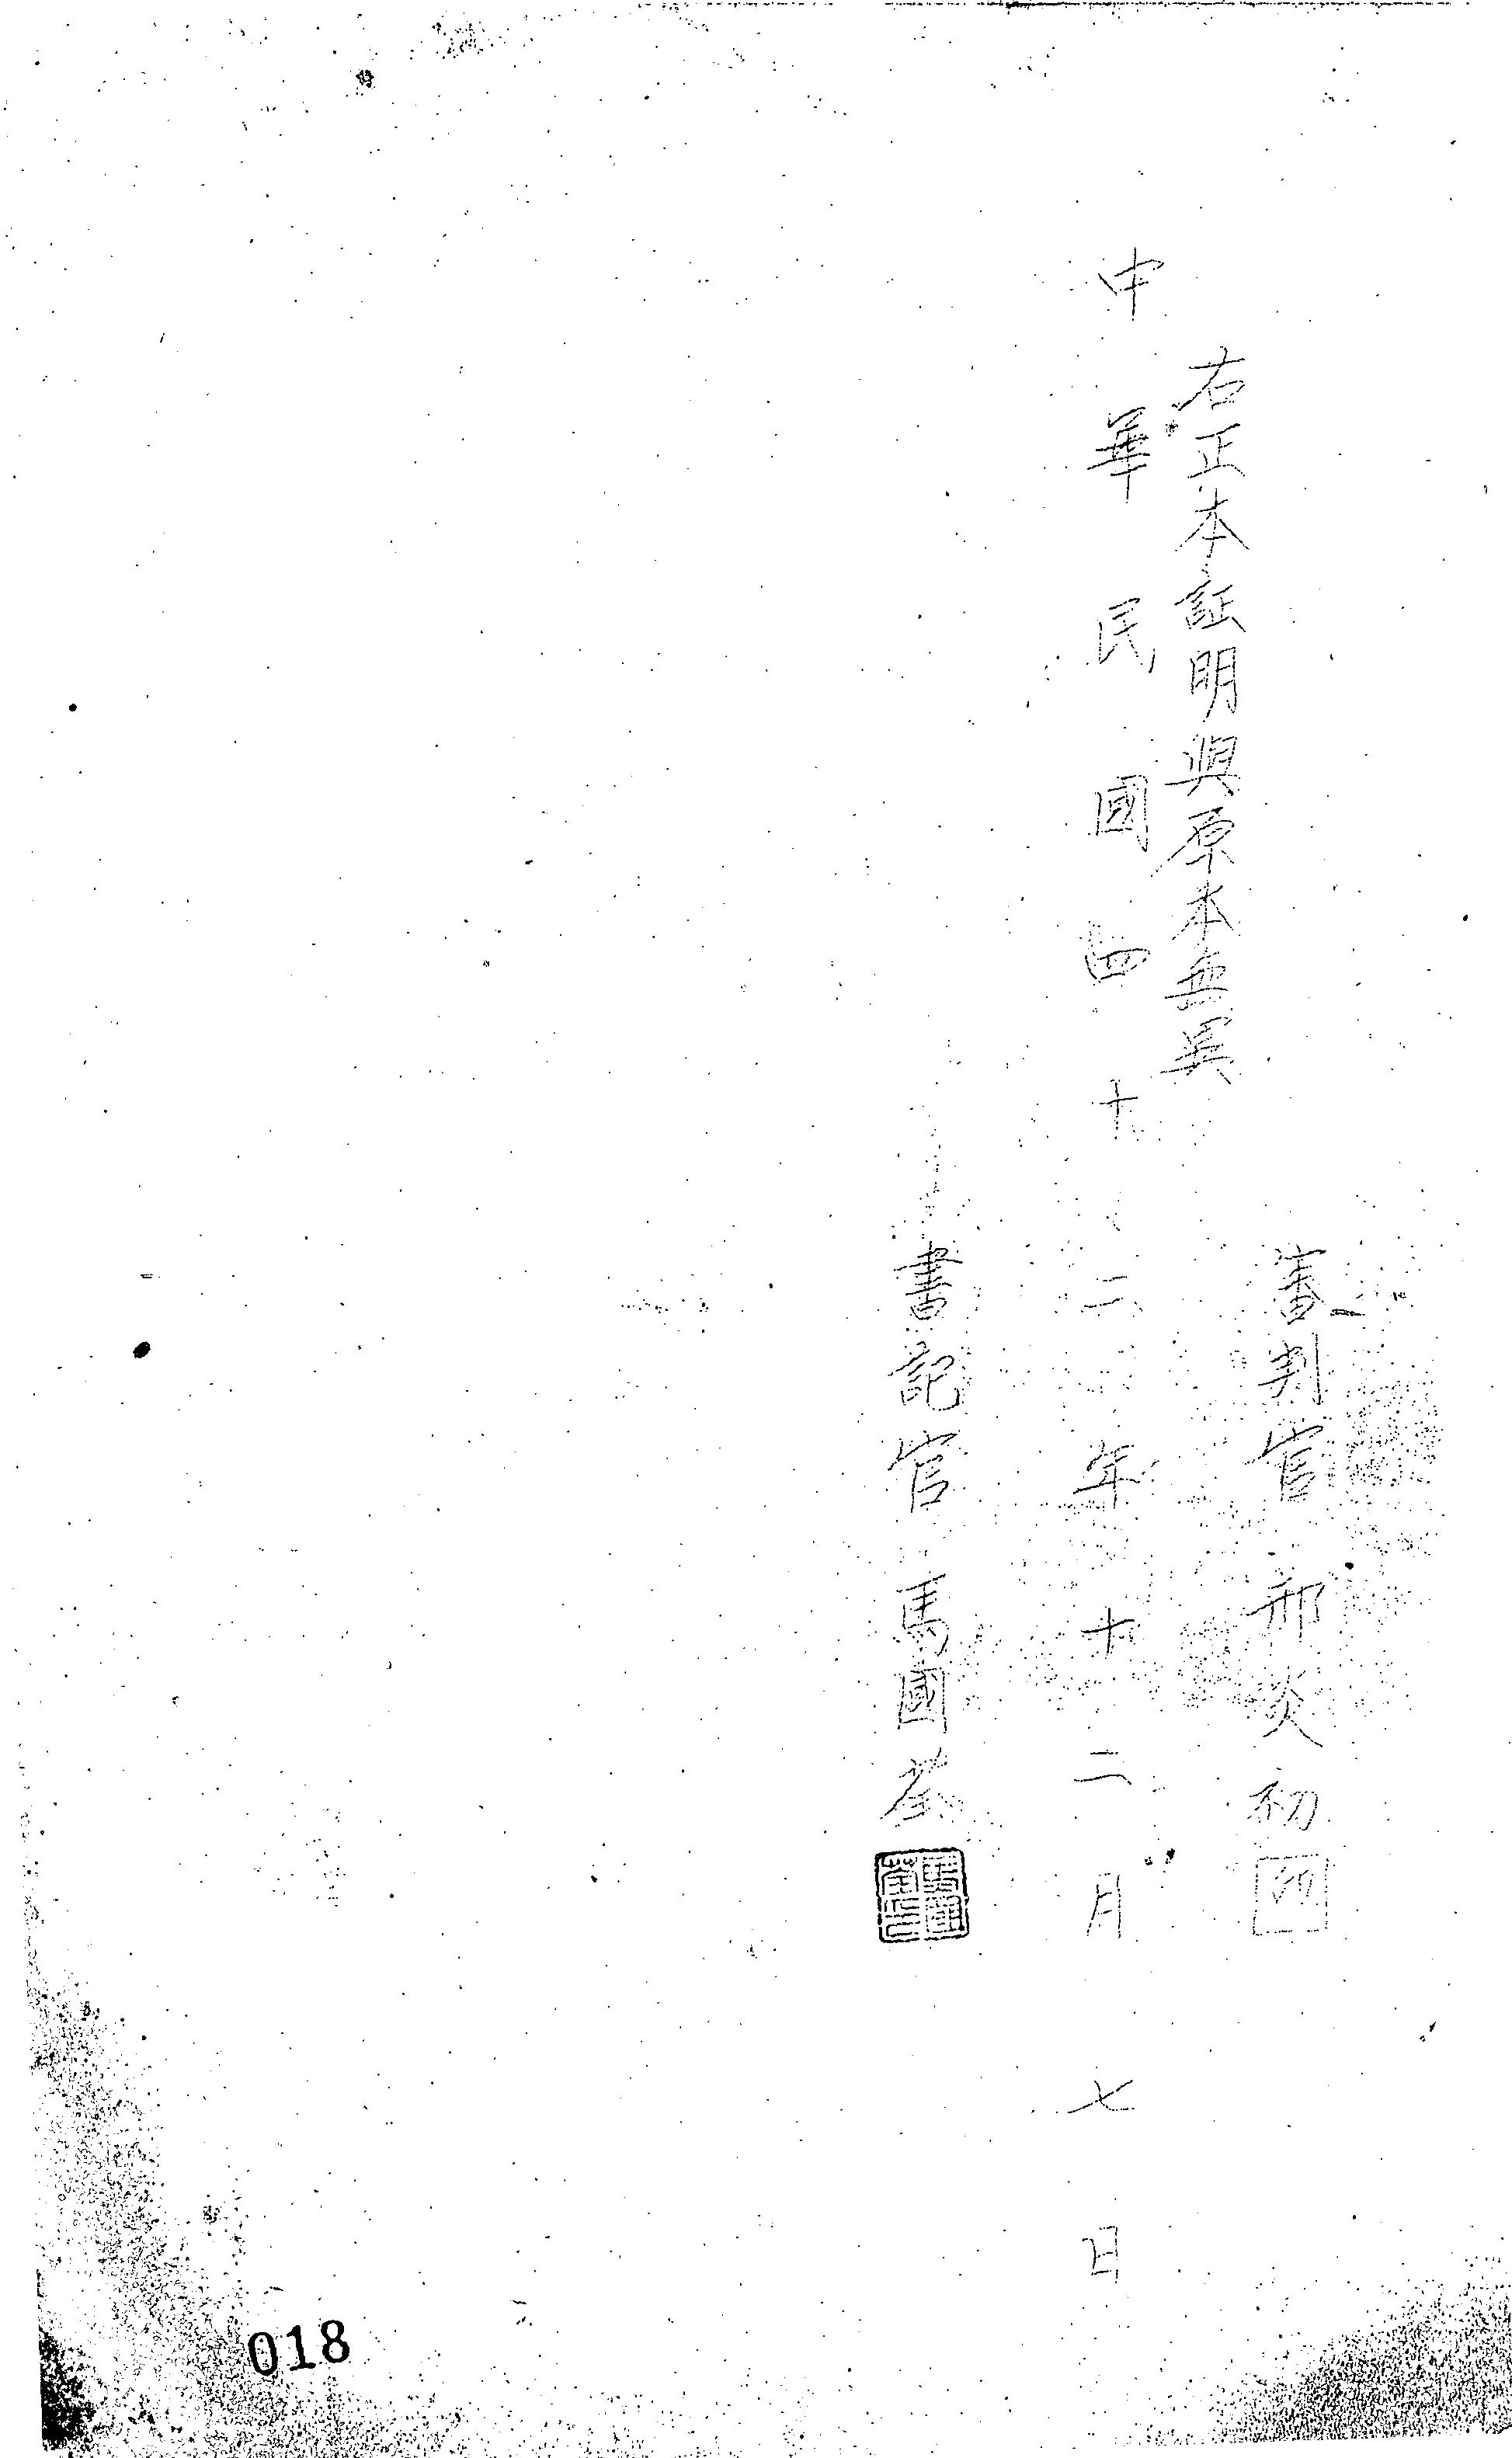 審判官 邢炎初 印
右正本証明與原本無異
中華民國四十二年十二月七日
書記官 馬國荃
馬國荃印
018